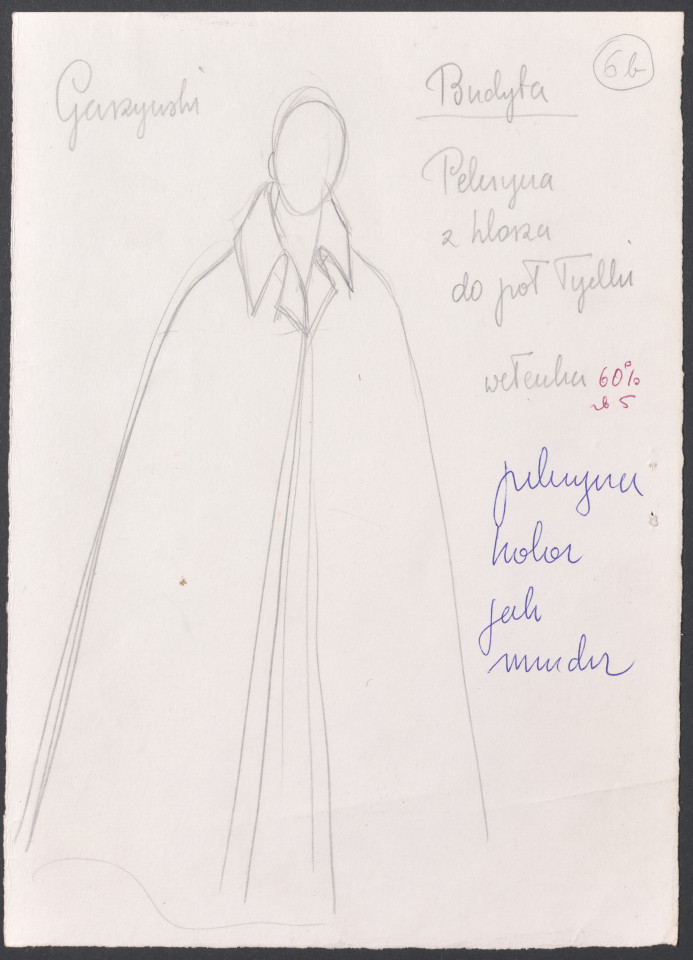 Garzyński
6b
Budyta
Peleryna
z kloszа
do poł łydki
wełenka 60%
peleryna
kolor
jak
mundur